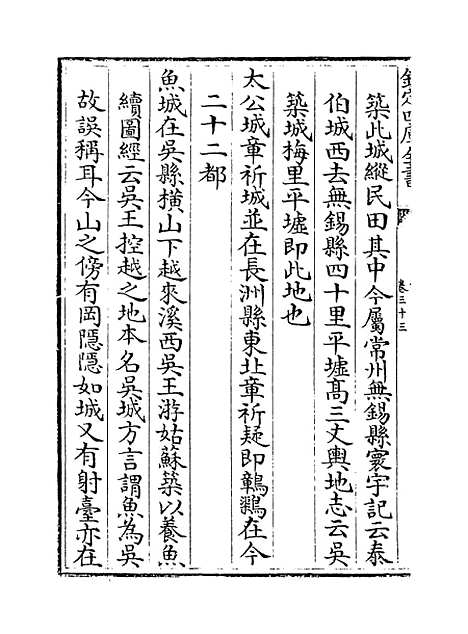 欽定四庫全書
卷三十三
築此城縱民田其中今屬常州無錫縣寰宇記云泰
伯城西去無錫縣四十里平墟高三丈輿地志云吳
築城梅里平墟即此地也
太公城章祈城並在長洲縣東北章祈疑即鸛鶒在今
二十二都
魚城在吳縣橫山下越來溪西吳王游姑蘇築以養魚
續圖經云吳王控越之地本名吳城方言謂魚為吳
故誤稱耳今山之傍有岡隱隱如城又有射臺亦在